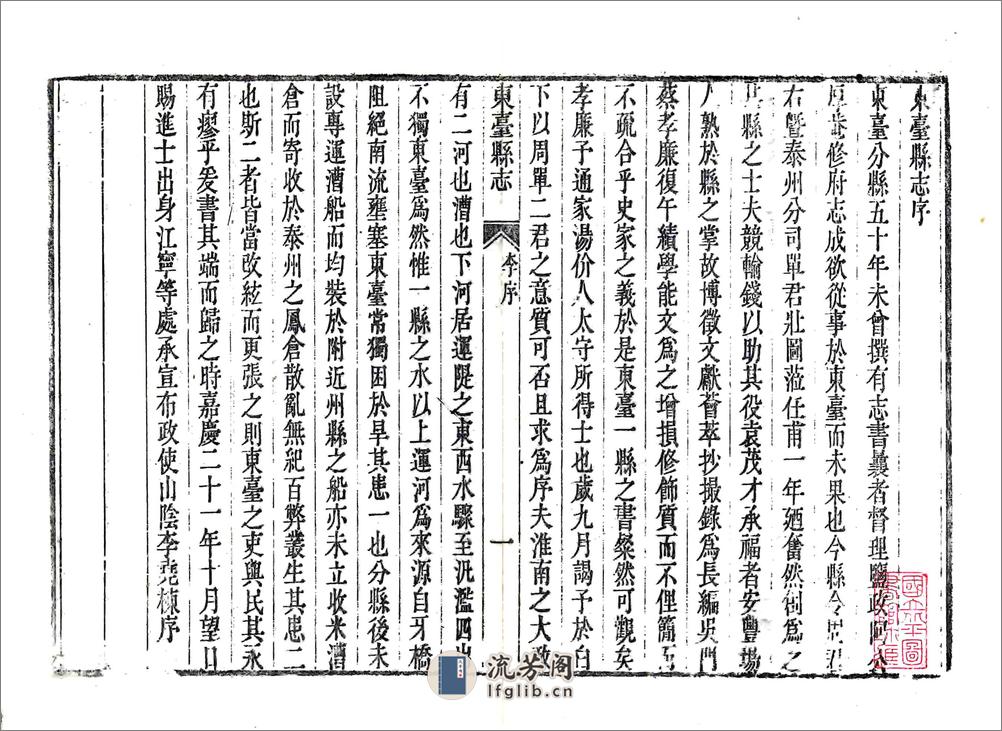 東臺縣志序
東臺分縣五十年未曾撰有志書曩者督理鹽政阿公
修府志成欲從事於東臺而未果也今縣令周君
右暨泰州分司單君壯圖蒞任甫一年廼奮然創為之
縣之士大夫競輸錢以助其役袁茂才承福者安豐場
人熟於縣之掌故博徵文獻薈萃抄撮錄為長編吳門
蔡孝廉復午績學能文為之增損修飾質而不俚簡而
不疏合乎史家之義於是東臺一縣之書粲然可觀矣
孝廉予通家湯价人太守所得士也歲九月謁予於白
下以周單二君之意質可否且求為序夫淮南之大政
東臺縣志
李序
一
有二河也漕也下河居運隄之東西水驟至汎濫四出
不獨東臺為然惟一縣之水以上運河為來源自牙橋
阻絕南流壅塞東臺常獨困於旱其患一也分縣後未
設專運漕船而均裝於附近州縣之船亦未立收米漕
倉而寄收於泰州之鳳倉散亂無紀百弊叢生其患二
也斯二者皆當改絃而更張之則東臺之吏與民其永
有瘳乎爰書其端而歸之時嘉慶二十一年十月望日
賜進士出身江寧等處承宣布政使山陰李堯棟序
流芳阁
lfglib.cn